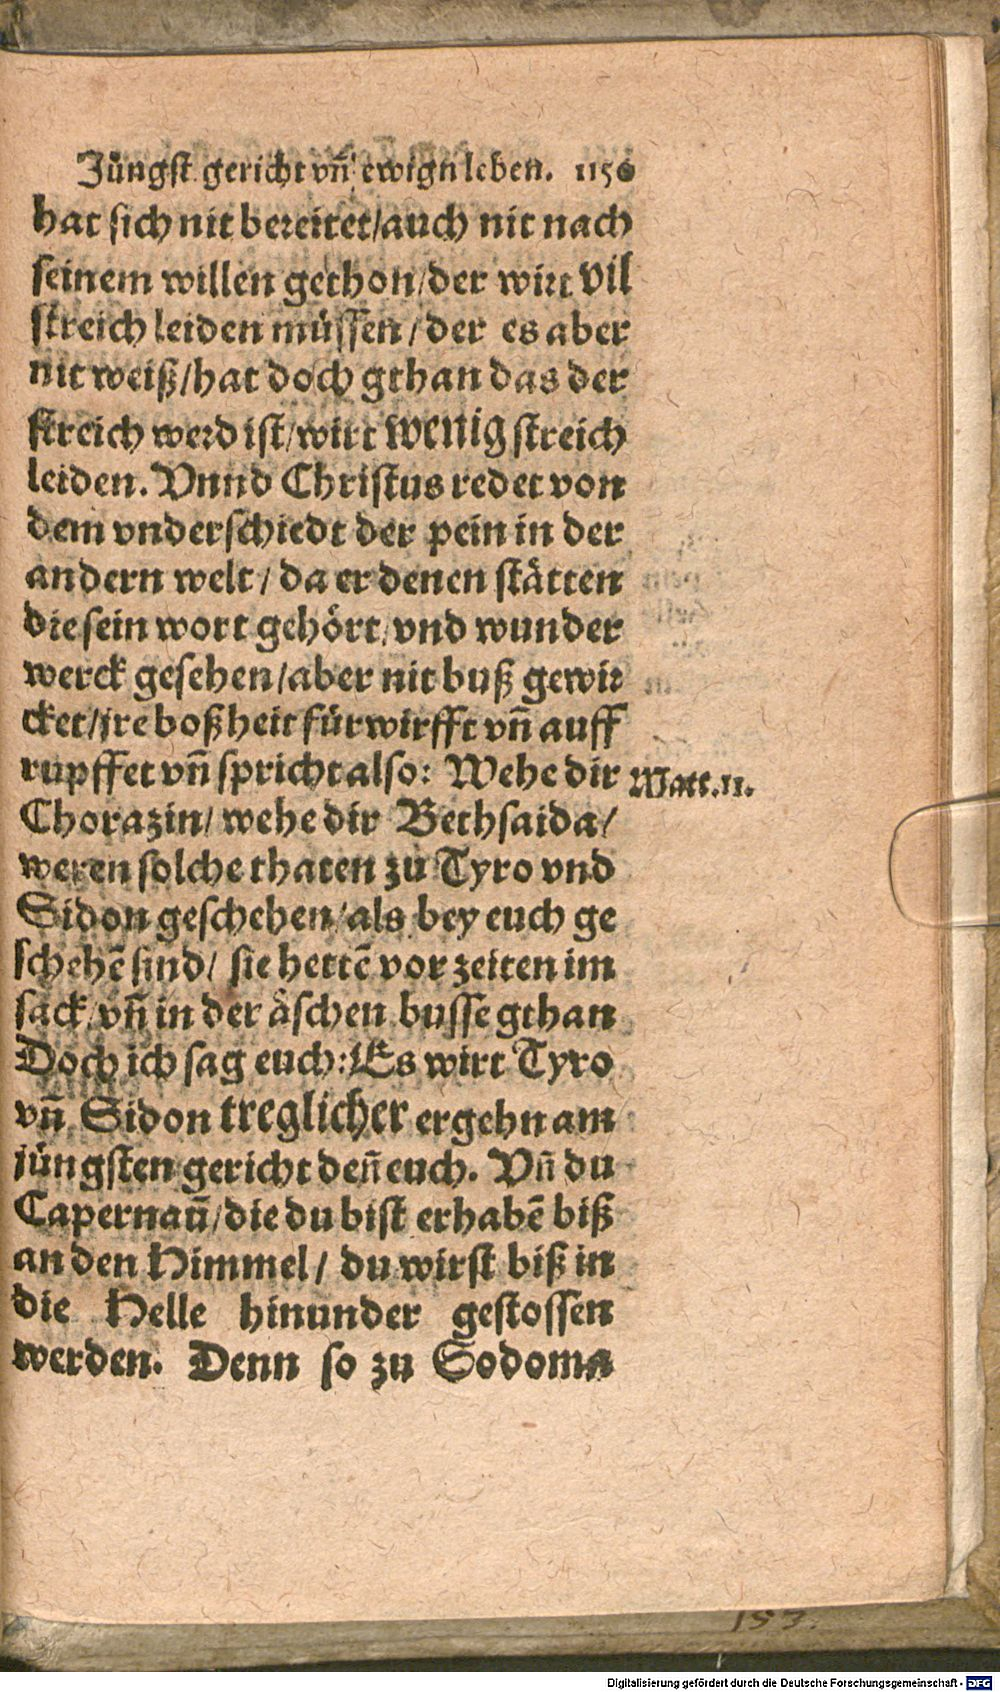 Jüngst gericht vñ ewign leben. 1150
hat sich nit bereitet/auch nit nach
seinem willen gethon/der wirt vil
streich leiden müssen/der es aber
nit weiß/hat doch gthan das der
streich werd ist/wirt wenig streich
leiden. Vnnd Christus redet von
dem vnderschiedt der pein in der
andern welt/da er denen stätten
die sein wort gehört/vnd wunder
werck gesehen/aber nit buß gewir
cket/jre boßheit fürwirfft vñ auff
rupffet vñ spricht also: Wehe dir
Matt.11.
Chorazin/wehe dir Bethsaida/
weren solche thaten zu Tyro vnd
Sidon geschehen/als bey euch ge
schehẽ sind/ sie hettẽ vor zeiten im
sack/vñ in der äschen busse gthan
Doch ich sag euch: Es wirt Tyro
vñ Sidon treglicher ergehn am
jüngsten gericht deñ euch. Vñ du
Capernaũ/die du bist erhabẽ biß
an den Himmel/ du wirst biß in
die Helle hinunder gestossen
werden. Denn so zu Sodoma
153.
Digitalisierung gefördert durch die Deutsche Forschungsgemeinschaft - DFG